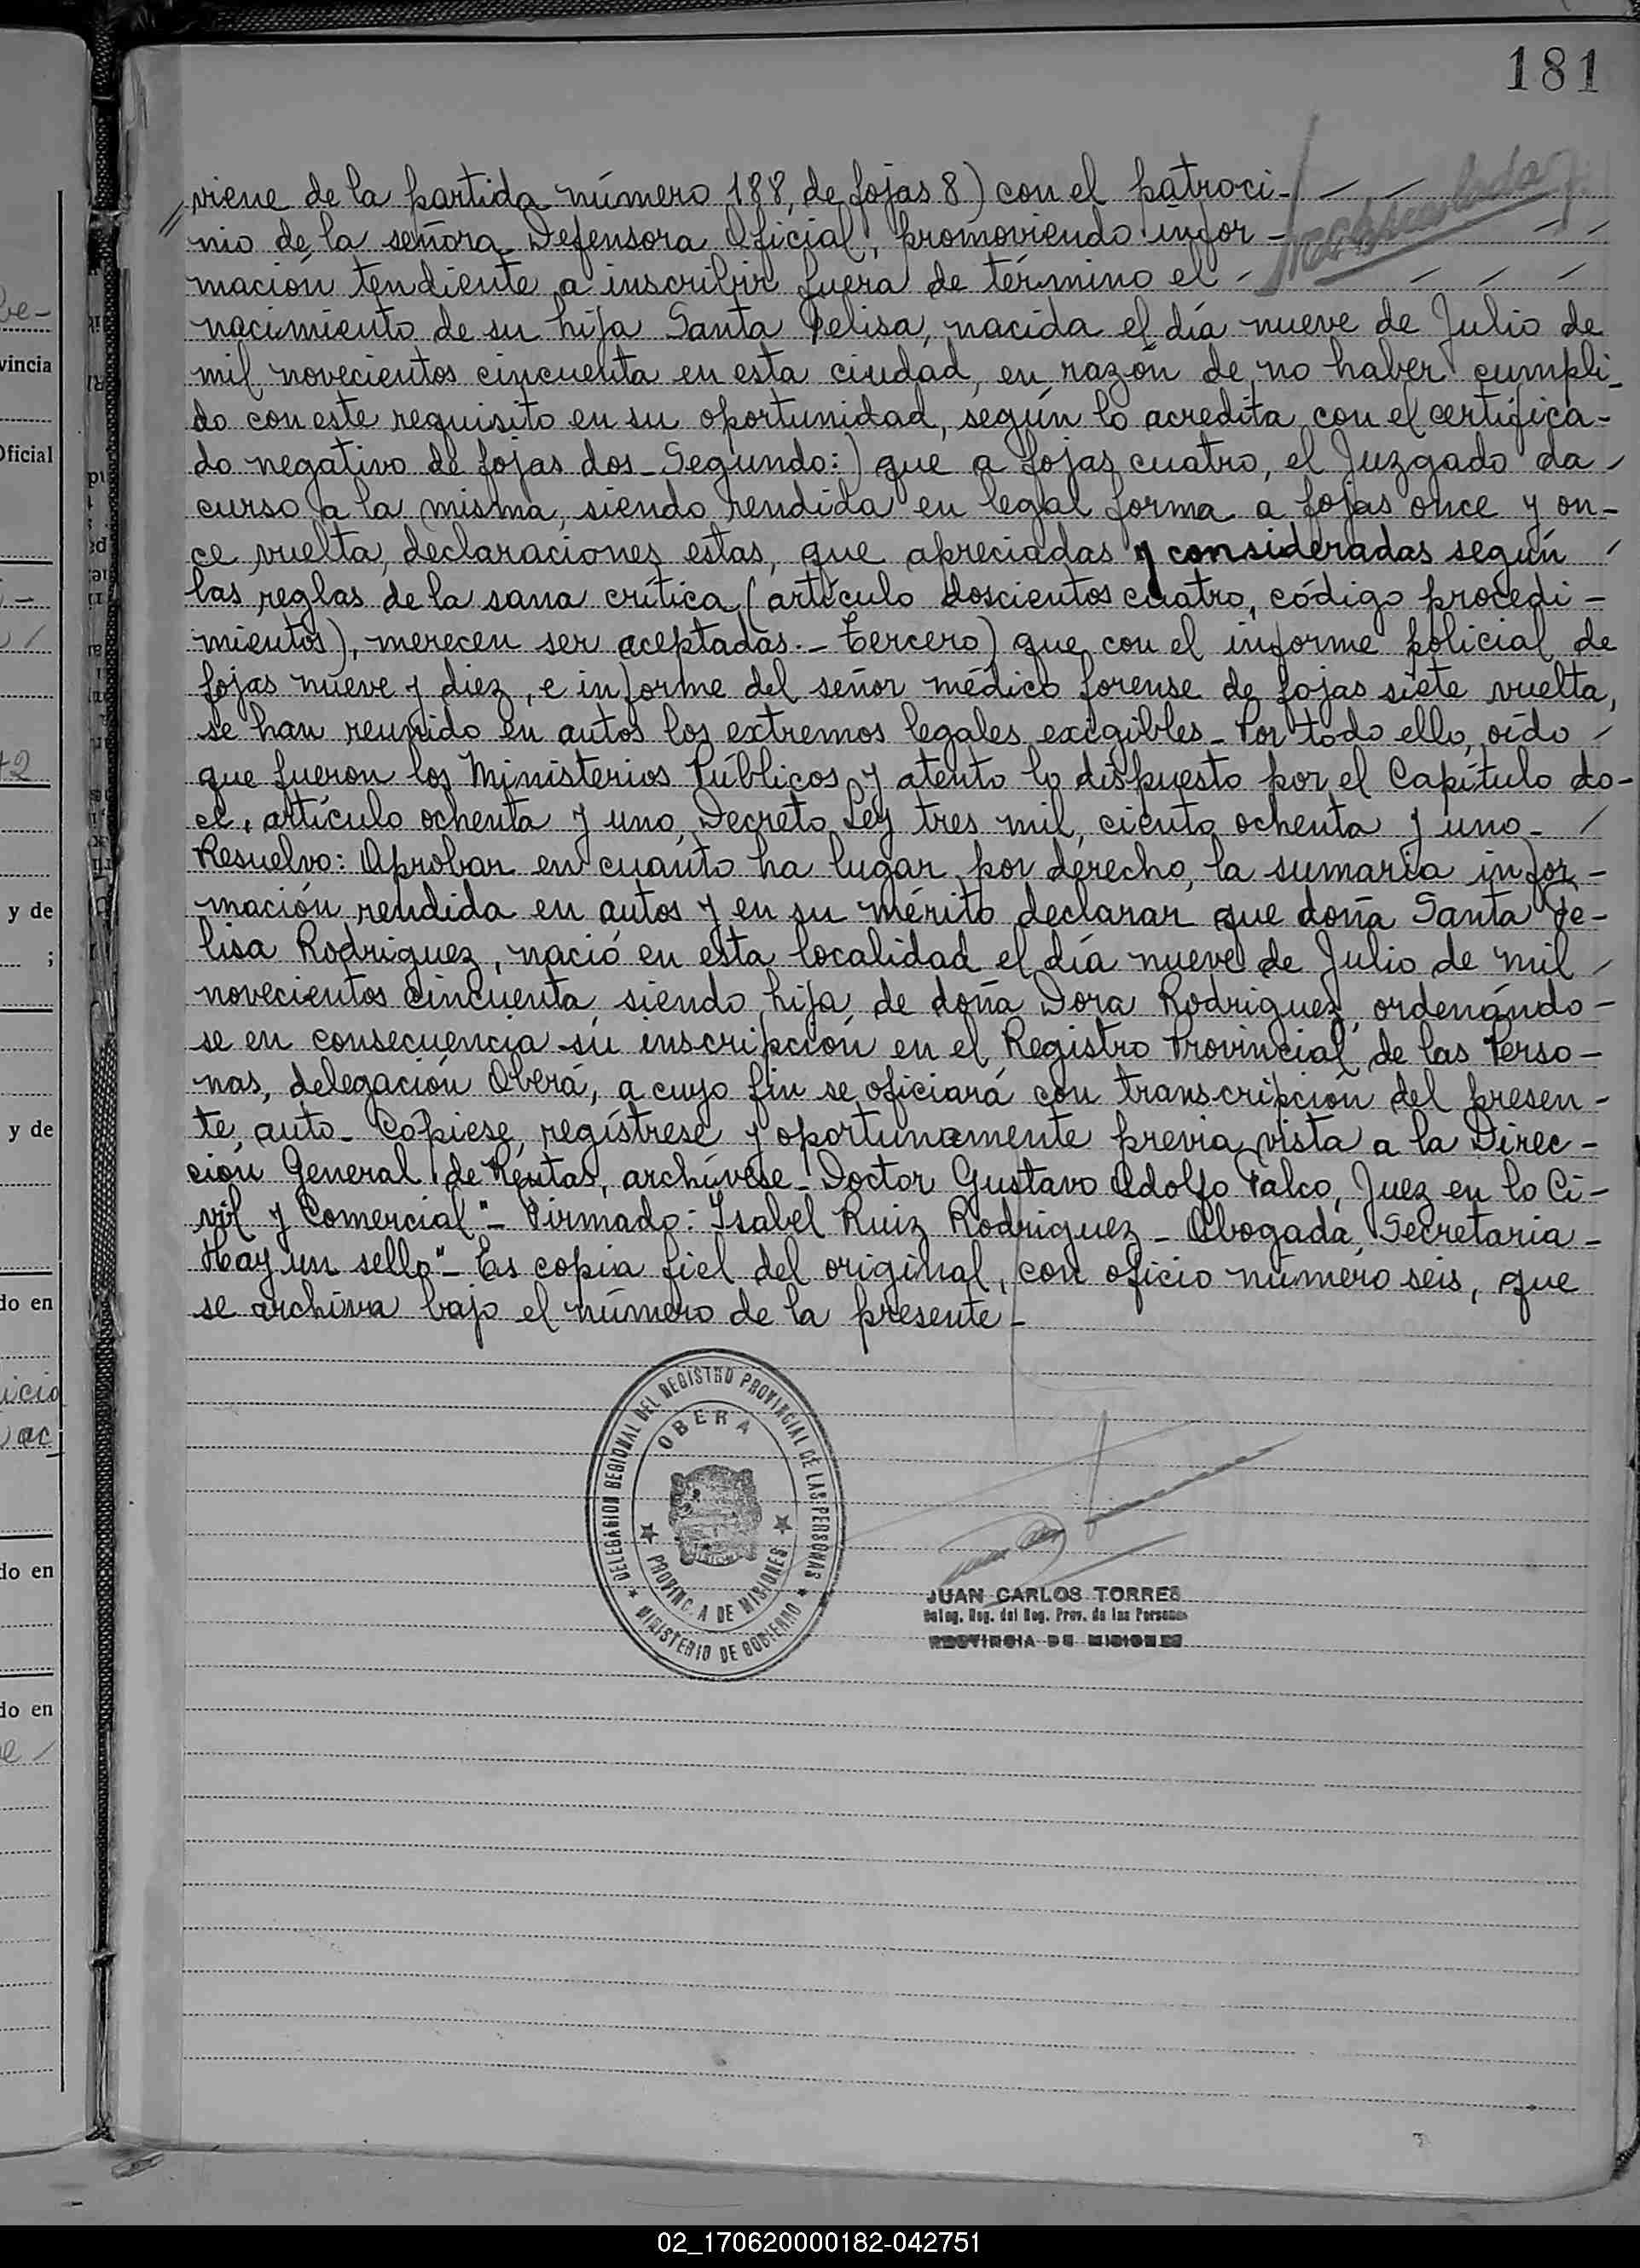 181
viene de la partida número 188, de fojas 8) con el patroci-
nio de la señora Defensora Oficial, promoviendo infor-
mación tendiente a inscribir fuera de término el
nacimiento de su hija Santa Felisa, nacida el día nueve de Julio de
mil novecientos cincuenta en esta ciudad, en razón de no haber cumpli-
do con este requisito en su oportunidad, según lo acredita con el certifica-
do negativo de fojas dos_Segundo:) que a fojas cuatro, el Juzgado da
curso a la misma, siendo rendida en legal forma a fojas once y on-
ce vuelta, declaraciones estas, que apreciadas y consideradas según
las reglas de la sana crítica (artículo doscientos cuatro, código procedi-
mientos), merecen ser aceptadas.- Tercero) que con el informe policial de
fojas nueve y diez, e informe del señor médico forense de fojas siete vuelta,
se han reunido en autos los extremos legales exigibles_ Por todo ello, oído
que fueron los Ministerios Públicos y atento lo dispuesto por el Capítulo do-
ce, artículo ochenta y uno, Decreto Ley tres mil, ciento ochenta y uno_
Resuelvo: Aprobar en cuanto ha lugar por derecho, la sumaria infor-
mación rendida en autos y en su mérito declarar que doña Santa Fe-
lisa Rodriguez, nació en esta localidad el día nueve de Julio de mil
novecientos cincuenta siendo hija de doña Dora Rodriguez, ordenándo-
se en consecuencia su inscripción en el Registro Provincial de las Perso-
nas, delegación Oberá, a cuyo fin se oficiará con transcripción del presen-
te, auto_ Cópiese, regístrese y oportunamente previa vista a la Direc-
ción General de Rentas, archívese_ Doctor Gustavo Adolfo Falco, Juez en lo Ci-
vil y Comercial"_ Firmado: Isabel Ruiz Rodriguez_ Abogada, Secretaria_
Hay un sello"_ Es copia fiel del original, con oficio número seis, que
se archiva bajo el número de la presente_
DELEGACION REGIONAL DEL REGISTRO PROVINCIAL DE LAS PERSONAS
OBERA
PROVINCIA DE MISIONES
MINISTERIO DE GOBIERNO
JUAN CARLOS TORRES
Deleg. Reg. del Reg. Prov. de las Personas
PROVINCIA DE MISIONES
vincia
Oficial
y de
;
y de
do en
icio
ac
do en
do en
02_170620000182-042751